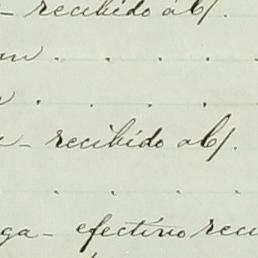 - recibido ab/.
. . . .
. . . .
- recibido ab/.
. . . .
ga - efectivo reci